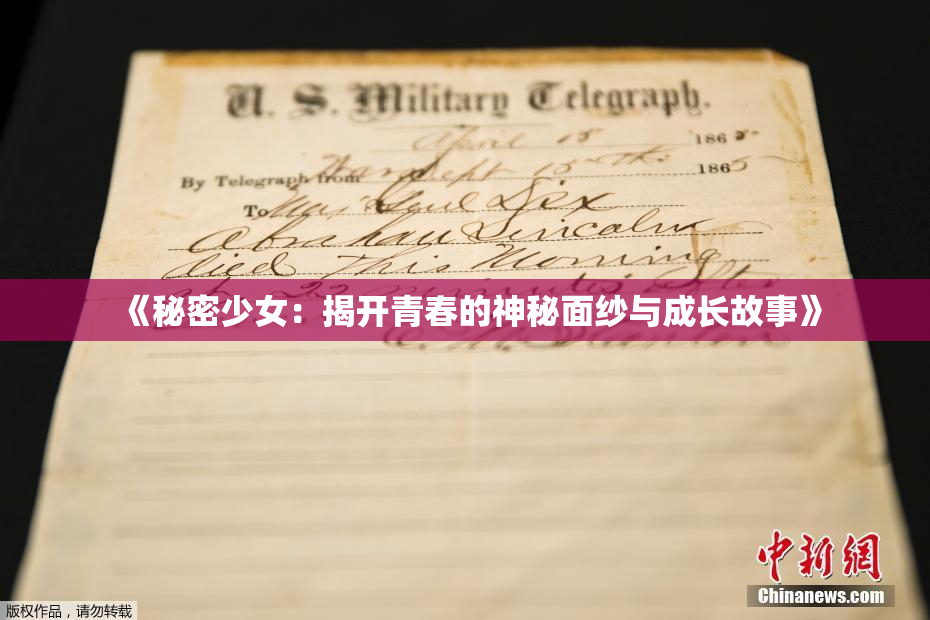 U. S. Military Telegraph.
April 15 1865
By Telegraph from War Dept 15th 1865
To Maj Genl Dix
Abraham Lincoln
died This Morning
at 22 minutes after
《秘密少女：揭开青春的神秘面纱与成长故事》
E. M. Stanton
中新网
Chinanews.com
版权作品，请勿转载